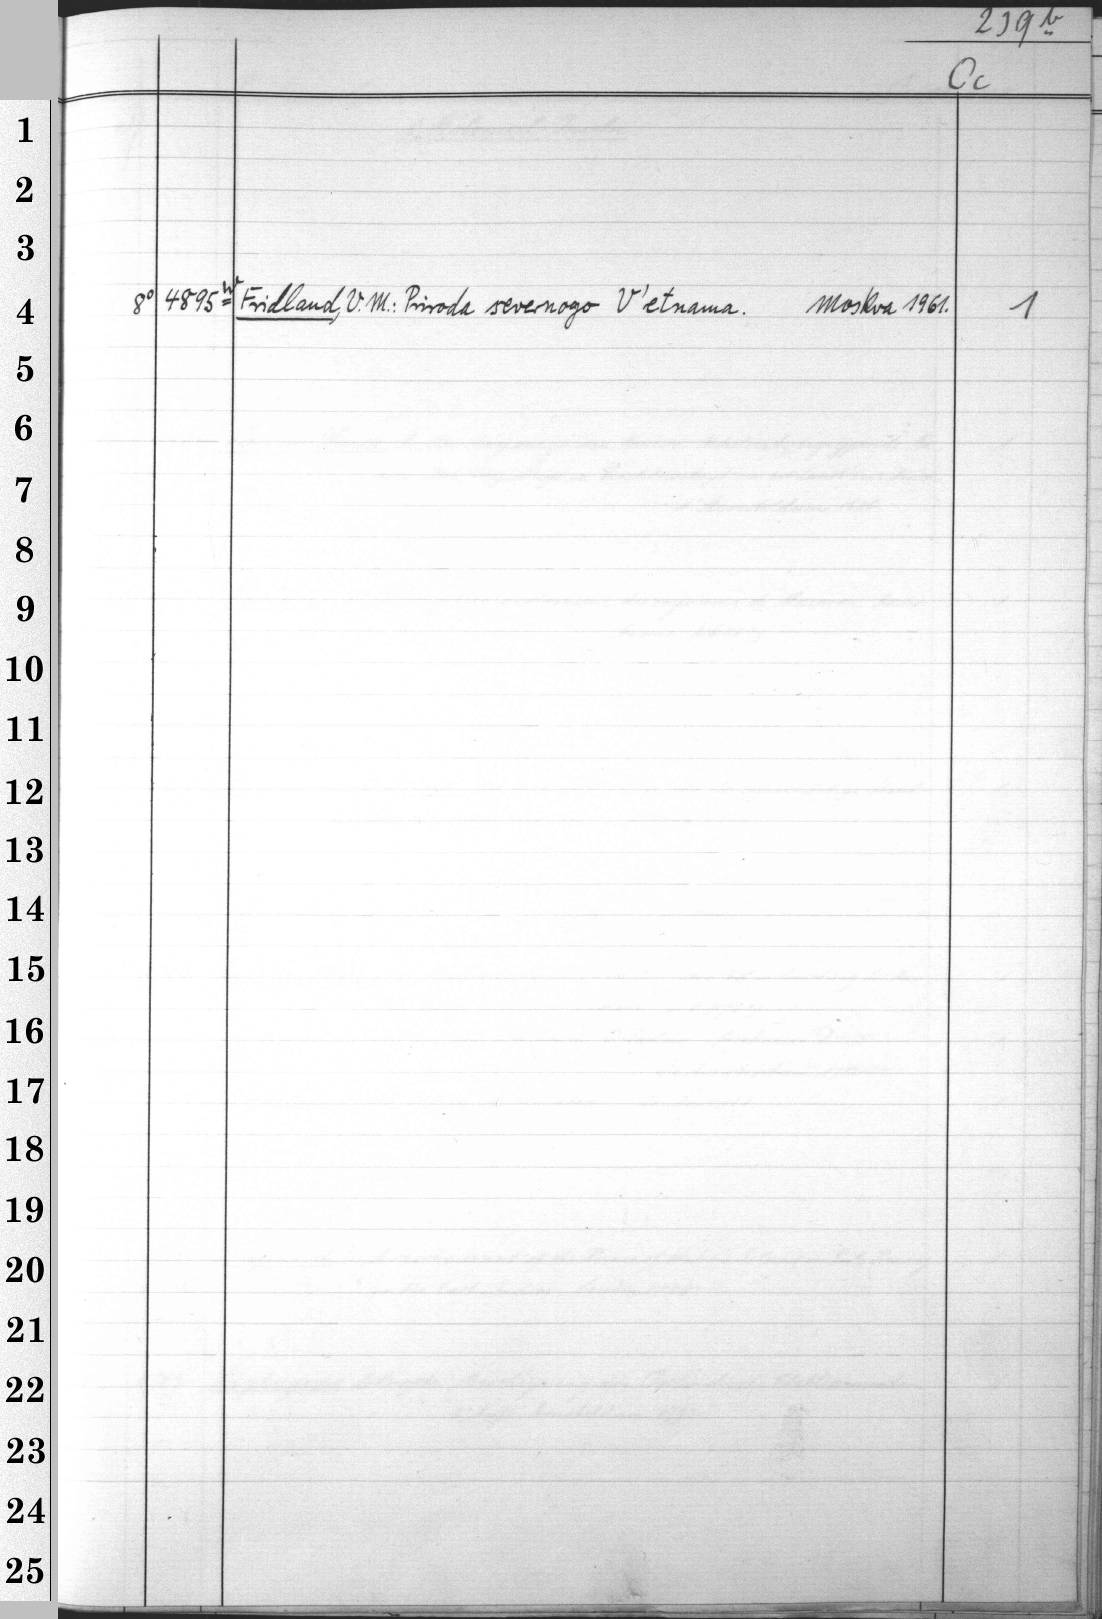 239 b
Oc
1
2
3
4 8° 4895 Fridland, V. M.: Priroda severnogo V'etnama. Moskva 1961. 1
5
6
7
8
9
10
11
12
13
14
15
16
17
18
19
20
21
22
23
24
25